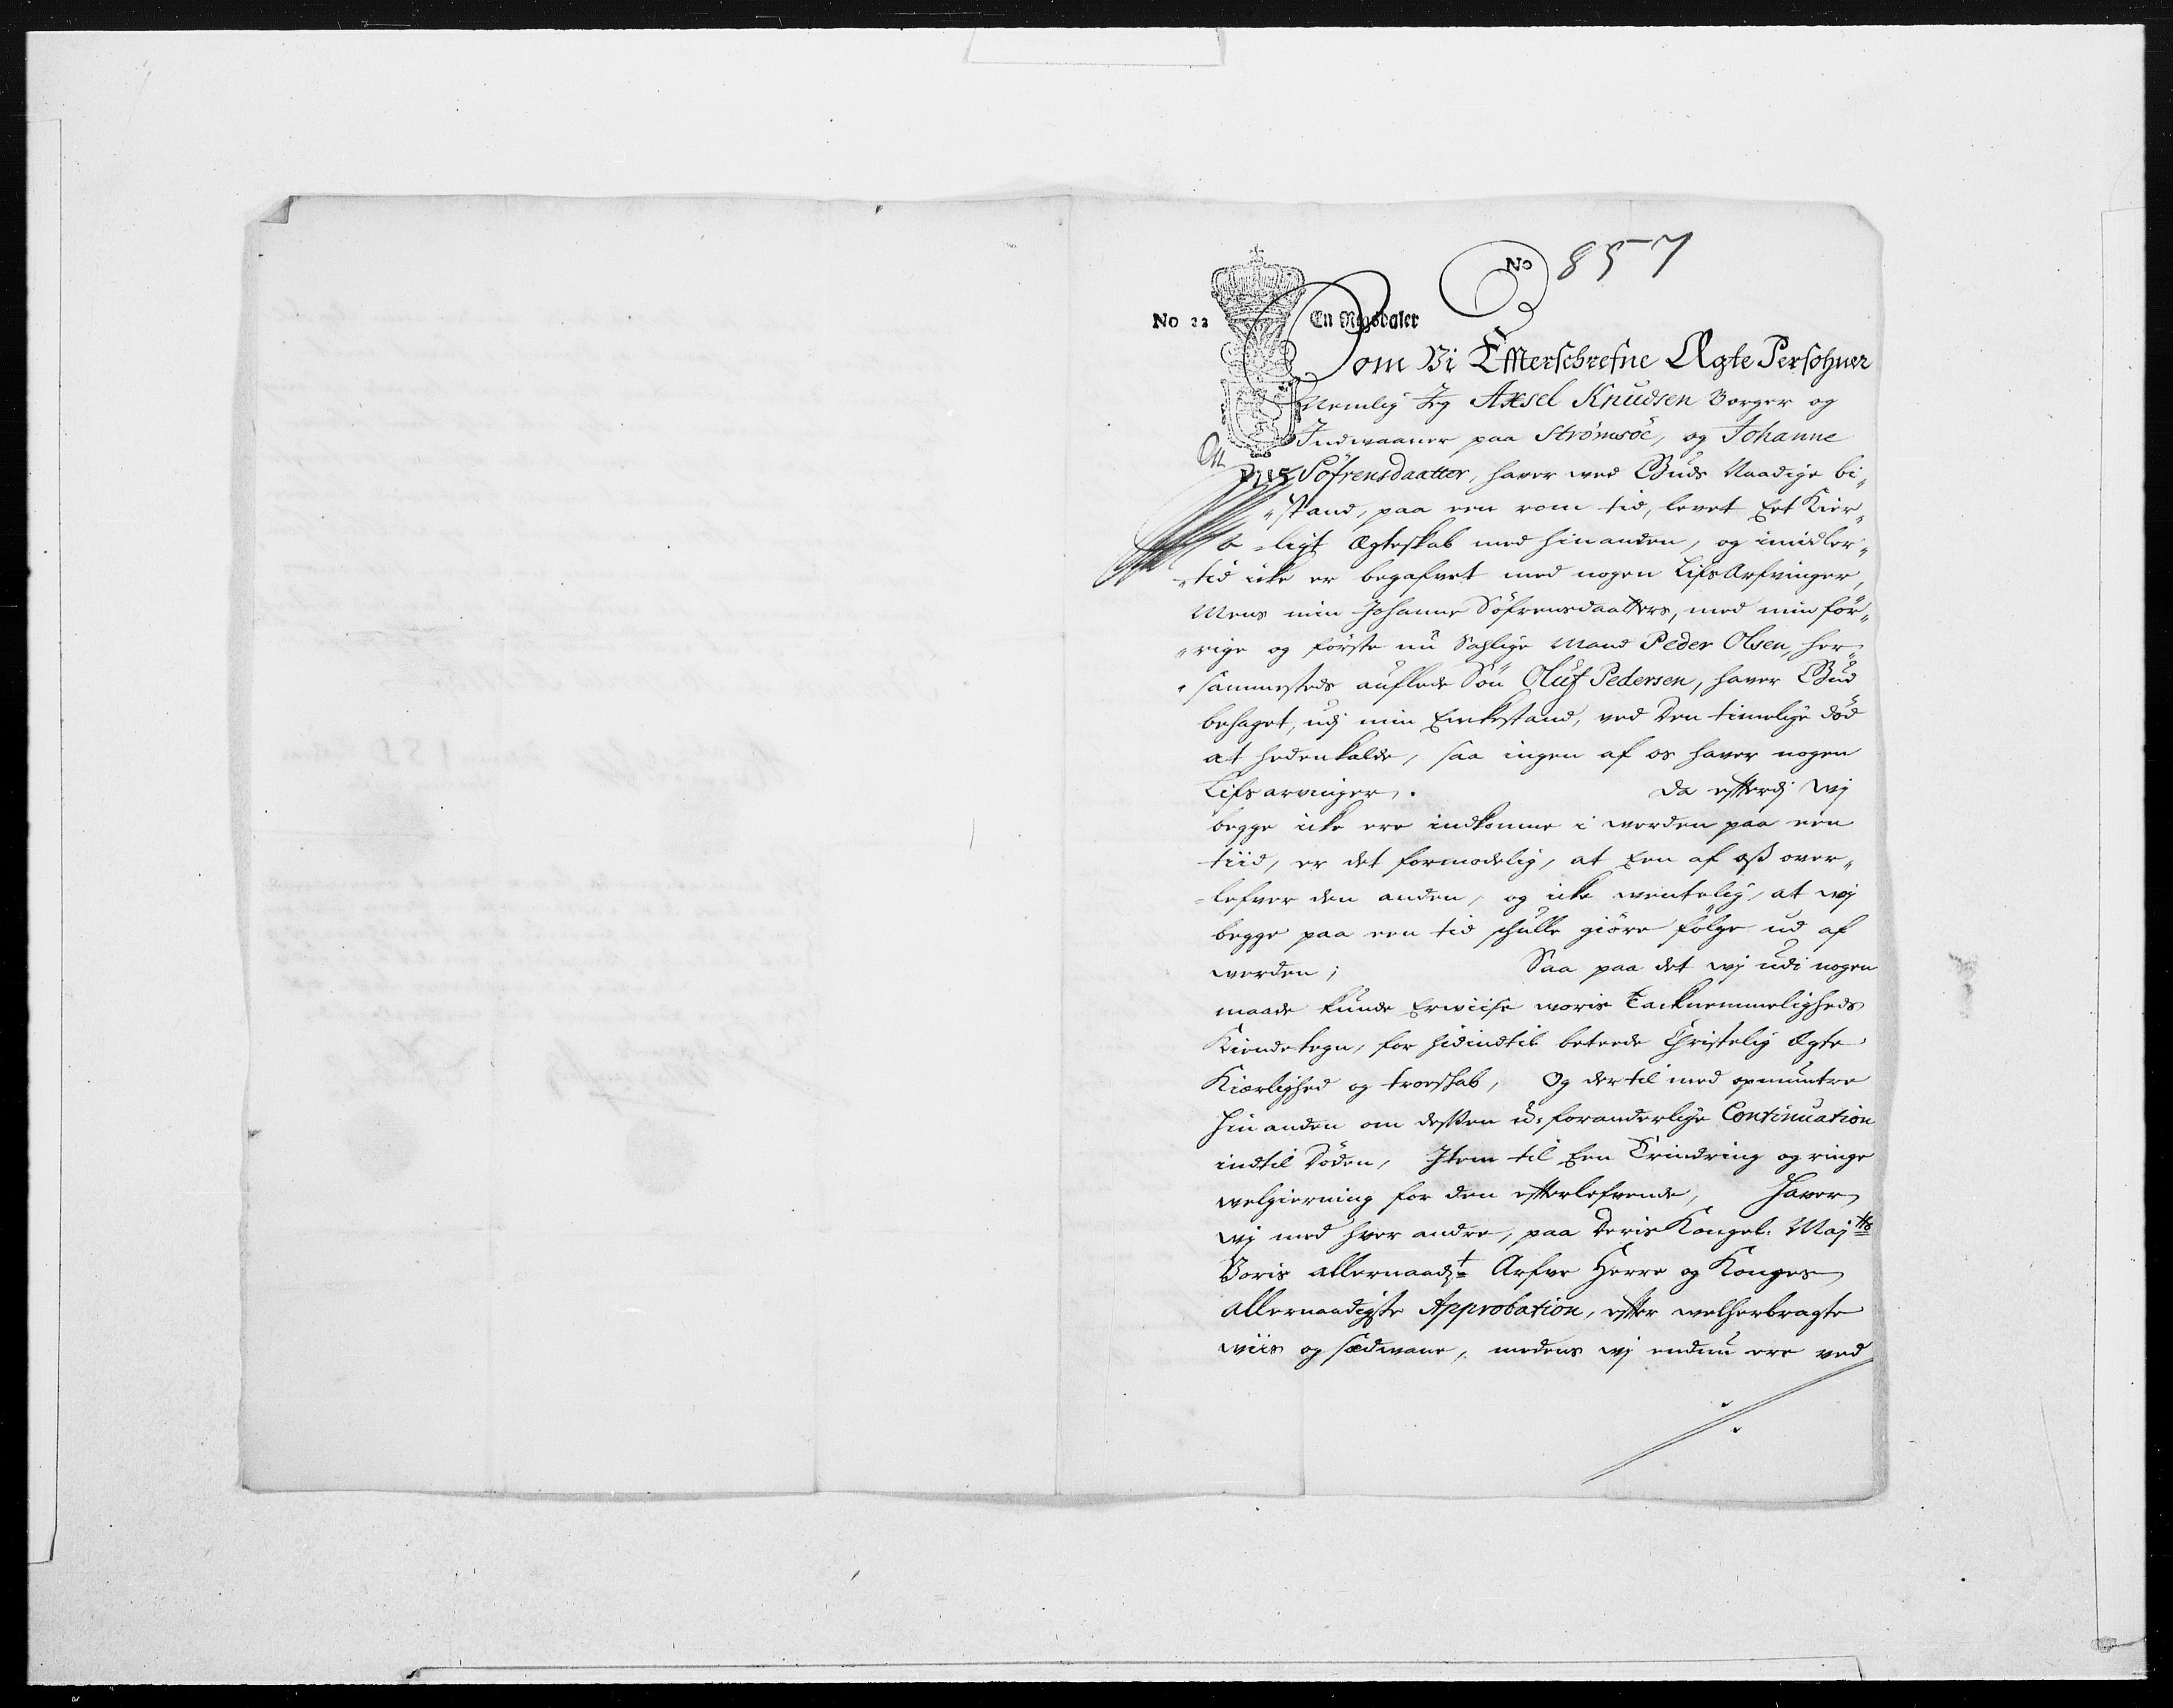 No 857
No 22 En Rigsdaler
Som Vi Effterschrefne Ægte Persohner
Nemlig Jeg Axsel Knudsen Borger og
Indwaaner paa Strömsöe, og Johanne
1715 Söfrensdaatter, hawer wed Guds Naadige bi„
„stand, paa een rom tid, lewet Eet Kier„
„ligt Ægteskab med hinanden, og imidler„
„tid icke er begafwet med nogen Lifs Arfvinger,
Mens min Johanne Söfrensdaatters, med min för„
„rige og förste nu Sahlige Mand Peder Olsen, her„
„sammesteds auflede Sön Oluf Pedersen, hawer Gud
behaget, udj min Enkestand, ved Den timelige död
at hedenkalde, saa ingen af os hawer nogen
Lifsarvinger. Da efterdj Wj
begge icke ere indkomne i werden paa een
tiid, er det formodelig, at Een af oß ower„
„lefwer den anden, og icke wentelig, at wj
begge paa een tid schulle giöre fölge ud af
werden; Saa paa det wj udi nogen
maade kunde Erwiise woris Tacknemmeligheds
Kiendetegn, for hidindtil beteede Christelig Ægte
Kiærlighed og troeskab, Og der til med opmuntre
hin anden om dessen u-foranderlige Continuation
indtil Döden, Item til Een Erindring og ringe
welgierning for den efterlefwende, Hawer
wj med hver andre, paa Deris Kongel. Majtts
Voris allernaadigt Arfwe Herre og Konges
allernaadigste Approbation, efter welherbragte
wiis og sædwane, medens wj endnu ere ved